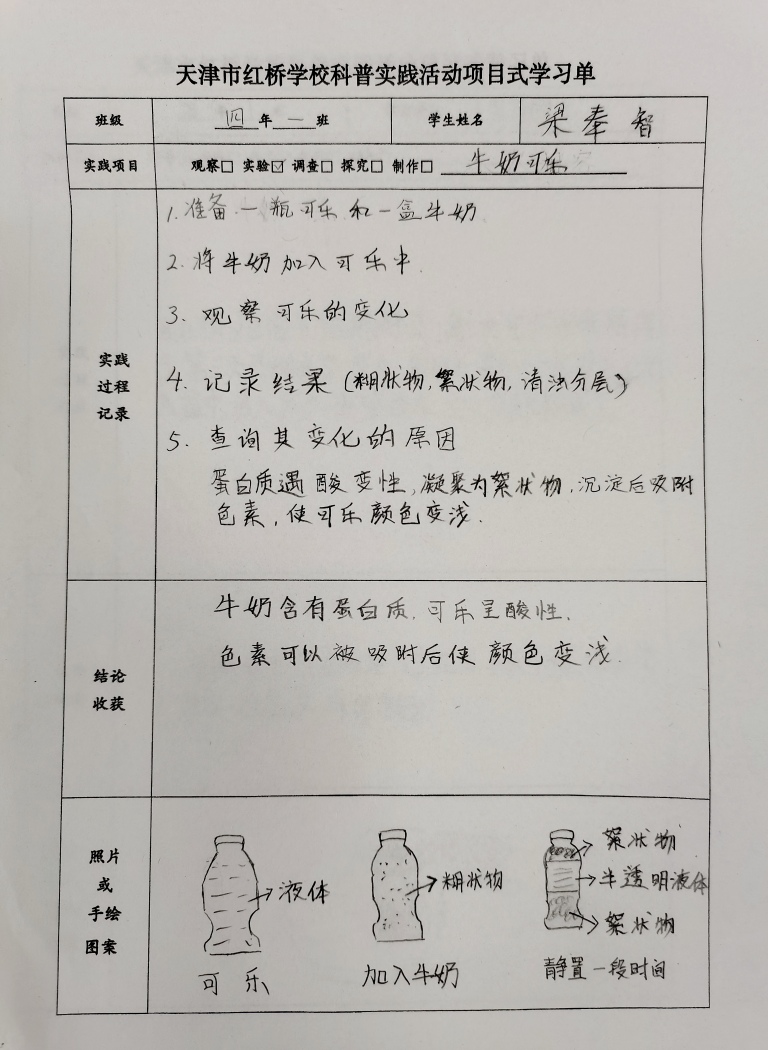 天津市红桥学校科普实践活动项目式学习单
班级 四年一班 学生姓名 梁奉智
实践项目 观察□ 实验☑ 调查□ 探究□ 制作□ 牛奶可乐
实践
过程
记录
1.准备一瓶可乐和一盒牛奶
2.将牛奶加入可乐中.
3.观察可乐的变化
4.记录结果(糊状物,絮状物,清浊分层)
5.查询其变化的原因
蛋白质遇酸变性,凝聚为絮状物.沉淀后吸附
色素,使可乐颜色变浅.
结论
收获
牛奶含有蛋白质.可乐呈酸性.
色素可以被吸附后使颜色变浅.
照片
或
手绘
图案
液体
可乐
糊状物
加入牛奶
絮状物
半透明液体
絮状物
静置一段时间